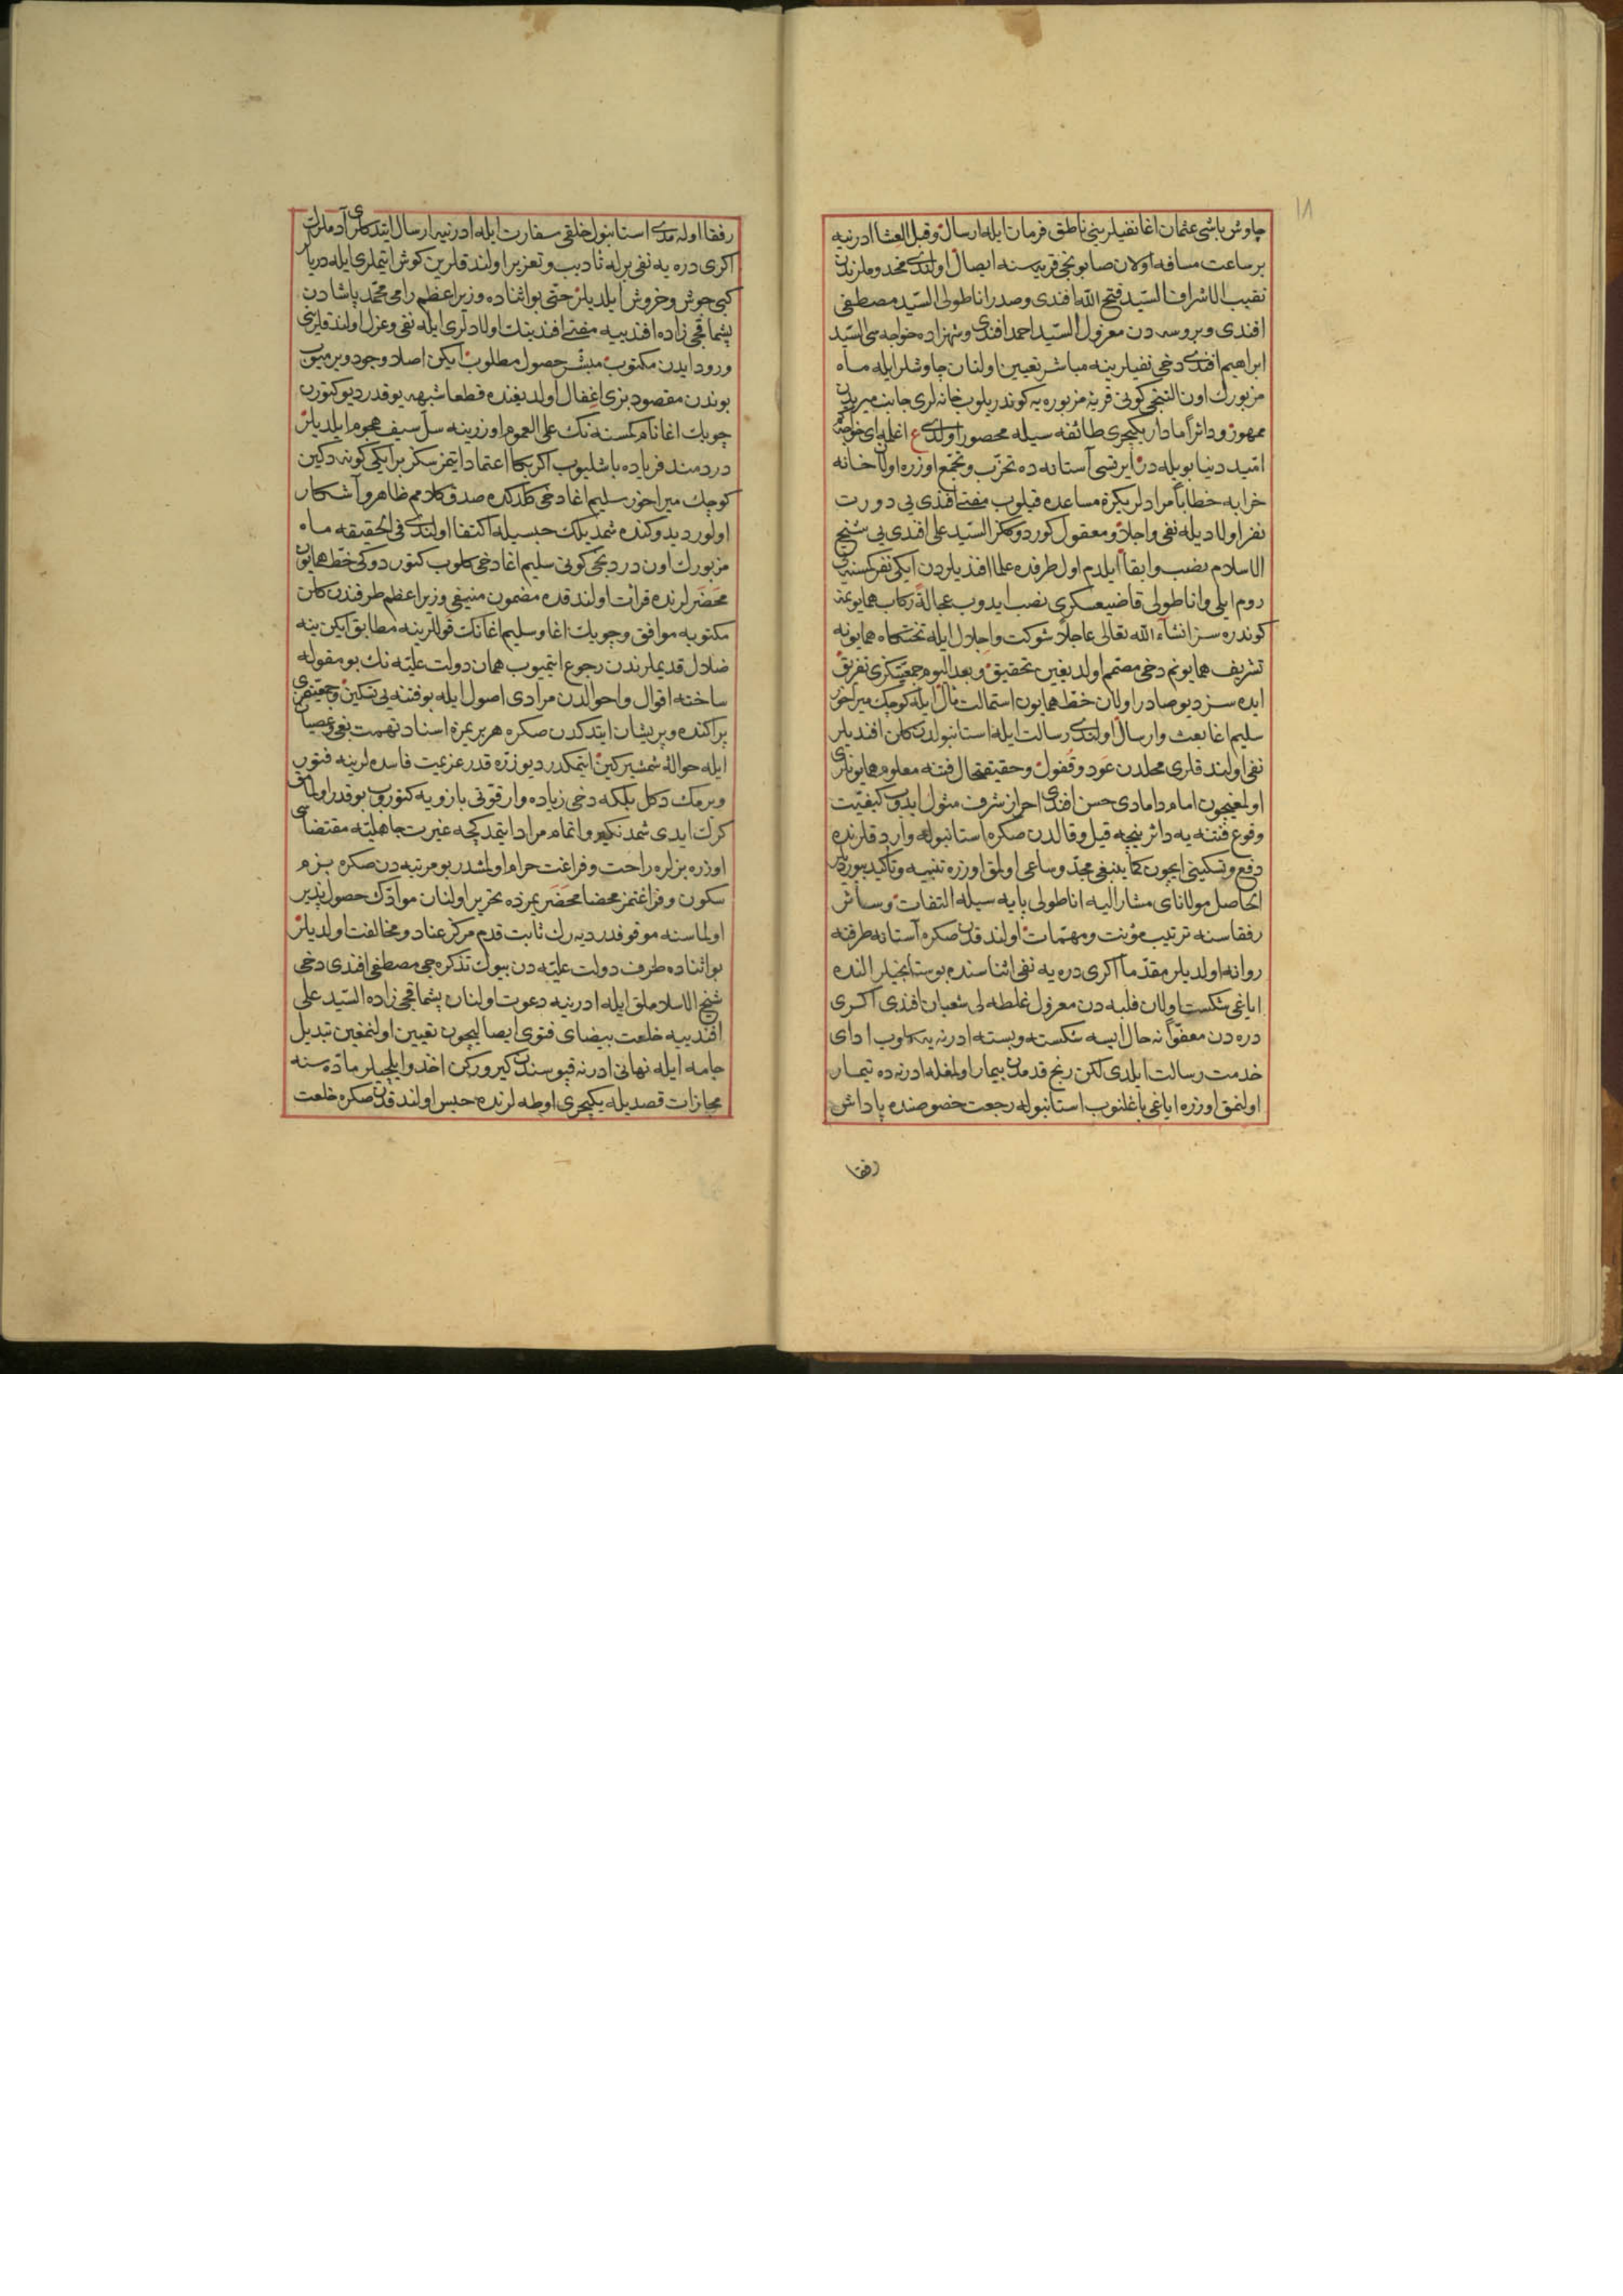 چاوش باشی عثمان اغا نفیلرینی ناطق فرمان ایله ارسال و قبل العشا ادرنیه
بر ساعت مسافه اولان صابونجی قریه سنه ایصال اولندی مخدوملرندن
نقیب الاشراف السّید فتح الله افندی و صدر اناطولی السّید مصطفی
افندی و بروسه دن معزول السّید احمد افندی و شهزاده خواجه سی السّید
ابراهیم افندی دخی نفیلرینه مباشر تعیین اولنان چاوشلر ایله ماه
مزبورك اون التنجی کونی قریهٔ مزبوره یه کوندریلوب خانه لری جانب میریدن
ممهور و دائراً مادار یکیچری طائفه سیله محصور اولندی ع اغلمه ای خواجه
امّید دنیا بویله در ایرتسی آستانه ده تحزّب و تجمّع اوزره اولان خانه
خرابه خطاباً مرادلریکزه مساعده قیلوب مفتی افندی یی دورت
نفر اولادیله نفی و اجلا و معقول کوردوککز السّید علی افندی یی شیخ
الاسلام نصب و ابقا ایلدم اول طرفده علما افندیلردن ایکی نفر کمسنه یی
روم ایلی و اناطولی قاضیعسکری نصب ایدوب عجالةً رکاب همایونمه
کوندره سز انشاء الله تعالی عاجلاً شوکت و اجلال ایله تختکاه همایونه
تشریف همایونم دخی مصمّم اولدیغین تحقیق و بعد الیوم جمعیّتکزی تفریق
ایده سز دیو صادر اولان خطّ همایون استمالت مآل ایله کوچك میراخور
سلیم اغا بعث و ارسال اولندی رسالت ایله استانبولدن کلن افندیلر
نفی اولندقلری محلدن عود و قفول و حقیقتحال فتنه معلوم همایونلری
اولمغیچون امام دامادی حسن افندی احراز شرف مثول ایدوب کیفیّت
وقوع فتنه یه دائر نیجه قیل و قالدن صکره استانبوله وارد قلرنده
دفع و تسکینی ایچون کما ینبغی مجدّ و ساعی اولمق اوزره تنبیه و تأکید بیوردیلر
الحاصل مولانای مشار الیه اناطولی پایه سیله التفات و سائر
رفقاسنه ترتیب مؤنت و مهمّات اولندقدن صکره آستانه طرفنه
روانه اولدیلر مقدّما اکری دره یه نفی اثناسنده بوستانجیلر النده
ایاغی شکست اولان فلبه دن معزول غلطه لی شعبان افندی اکری
دره دن معفوّاً نه حال ایسه شکسته و بسته ادرنه یه کلوب ادای
خدمت رسالت ایلدی لکن رنج قدمدن بیمار اولمغله ادرنه ده تیمار
اولنمق اوزره ایاغی باغلنوب استانبوله رجعت خصوصنده پاداش
رفقا
رفقا اوله مدی استانبول خلقی سفارت ایله ادرنیه ارسال ایتدکلری آدملرك
اکری دره یه نفی برله تأدیب و تعزیر اولندقلرین کوش ایتملری ایله دریا
کبی جوش و خروش ایلدیلر حتی بو اثناده وزیر اعظم رامی محمّد پاشادن
پشماقچی زاده افندییه مفتی افندینك اولادلری ایله نفی و عزل اولندقلری
ورود ایدن مکتوب مبشّر حصول مطلوب ایکن اصلا وجود ویرمیوب
بوندن مقصود بزی اغفال اولدیغنده قطعا شبهه یوقدر دیو کتورن
چوبك اغا نام کمسنه نك علی العموم اوزرینه سلّ سیف هجوم ایلدیلر
دردمند فریاده باشلیوب اکر بکا اعتماد ایتمز سکز بر ایکی کونه دکین
کوچك میراخور سلیم اغا دخی کلدکده صدق کلامم ظاهر و آشکار
اولور دیدوکنده شمدیلك حبسیله اکتفا اولندی فی الحقیقه ماه
مزبورك اون دردنجی کونی سلیم اغا دخی کلوب کتوردوکی خطّ همایون
محضرلرنده قرائت اولندقده مضمون منیفی وزیر اعظم طرفندن کلن
مکتوبه موافق و چوبك اغا و سلیم اغانك قوللرینه مطابق ایکن ینه
ضلال قدیملرندن رجوع ایتمیوب همان دولت علیّه نك بو مقوله
ساخته اقوال و احوالدن مرادی اصول ایله بو فتنه یی تسکین و جمعیّتمزی
پراکنده و پریشان ایتدکدن صکره هر بریمزه اسناد تهمت بغی و عصیان
ایله حوالهٔ شمشیر کین ایتمکدر دیو زرّه قدر عزیمت فاسده لرینه فتور
ویرمك دکل بلکه دخی زیاده وار قوّتی بازویه کتوروب بو قدر اولمق
کرك ایدی شمدنکیرو اتمام مراد ایتمدکجه غیرت جاهلیّه مقتضاسی
اوزره بزلره راحت و فراغت حرام اولمشدر بو مرتبه دن صکره بزم
سکون و فراغتمز محضا محضریمزده تحریر اولنان موادّك حصول پذیر
اولماسنه موقوفدر دیه رك ثابت قدم مرکز عناد و مخالفت اولدیلر
بو اثناده طرف دولت علیّه دن بیوك تذکره جی مصطفی افندی دخی
شیخ الاسلاملق ایله ادرنیه دعوت اولنان پشماقچی زاده السّید علی
افندییه خلعت بیضای فتوی ایصالیچون تعیین اولنمغین تبدیل
جامه ایله نهانی ادرنه قپوسندن کیرورکن اخذ و ایلچیلر مادّه سنه
مجازات قصدیله یکیچری اوطه لرنده حبس اولندقدن صکره خلعت